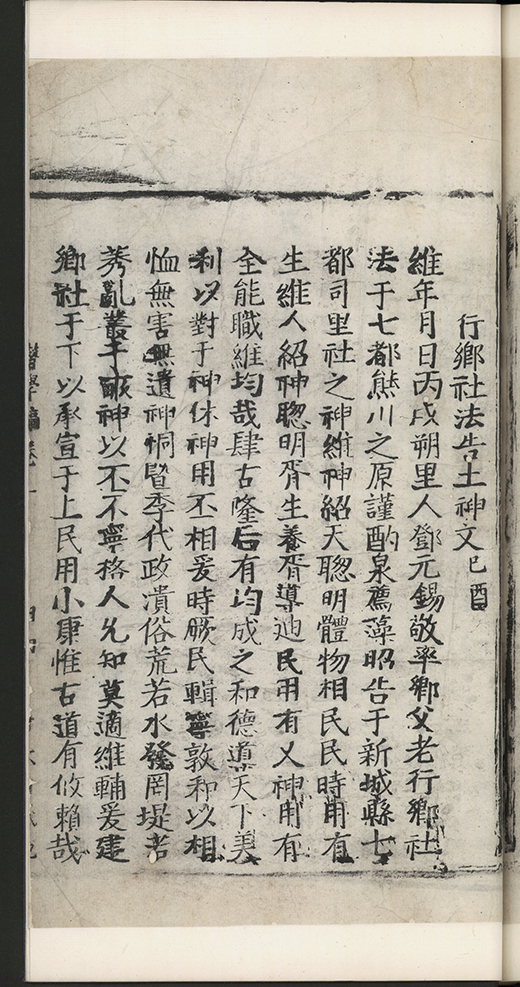 行鄉社法告土神文己酉
維年月日丙戌朔里人鄧元錫敬率鄉父老行鄉社
法于七都熊川之原謹酌泉薦藻昭告于新城縣七
都司里社之神維神紹天聰明體物相民民時用有
生維人紹神聰明胥生養胥導迪民用有乂神用有
全能職維均哉肆古隆后有均成之和德導天下美
利以對于神休神用丕相爰時厥民輯寧敦和以相
恤無害無遺神恫暨季代政潰俗荒若水發罔堤若
莠亂叢于畝神以不丕寧格人允知莫適維輔爰建
鄉社于下以承宣于上民用小康惟古道有攸賴哉